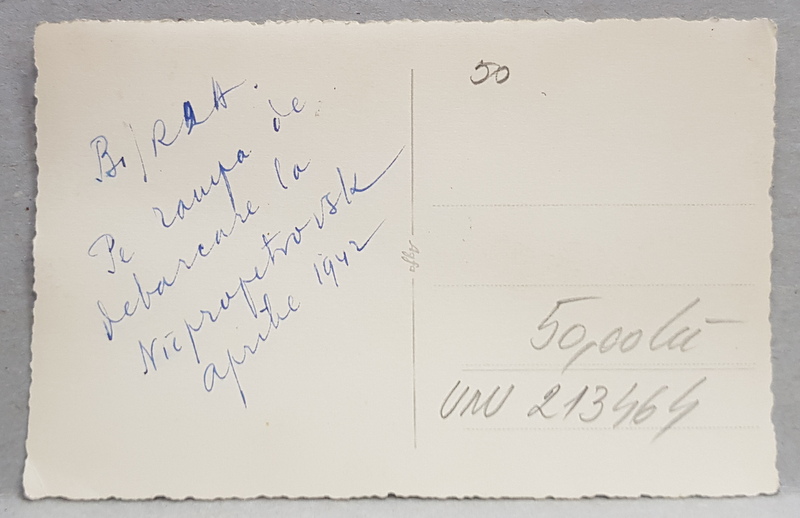 B./R2H.
Pe rampa de
debarcare la
Niepropetrovsk
aprilie 1942
50
50,00 lei
UNU 213464